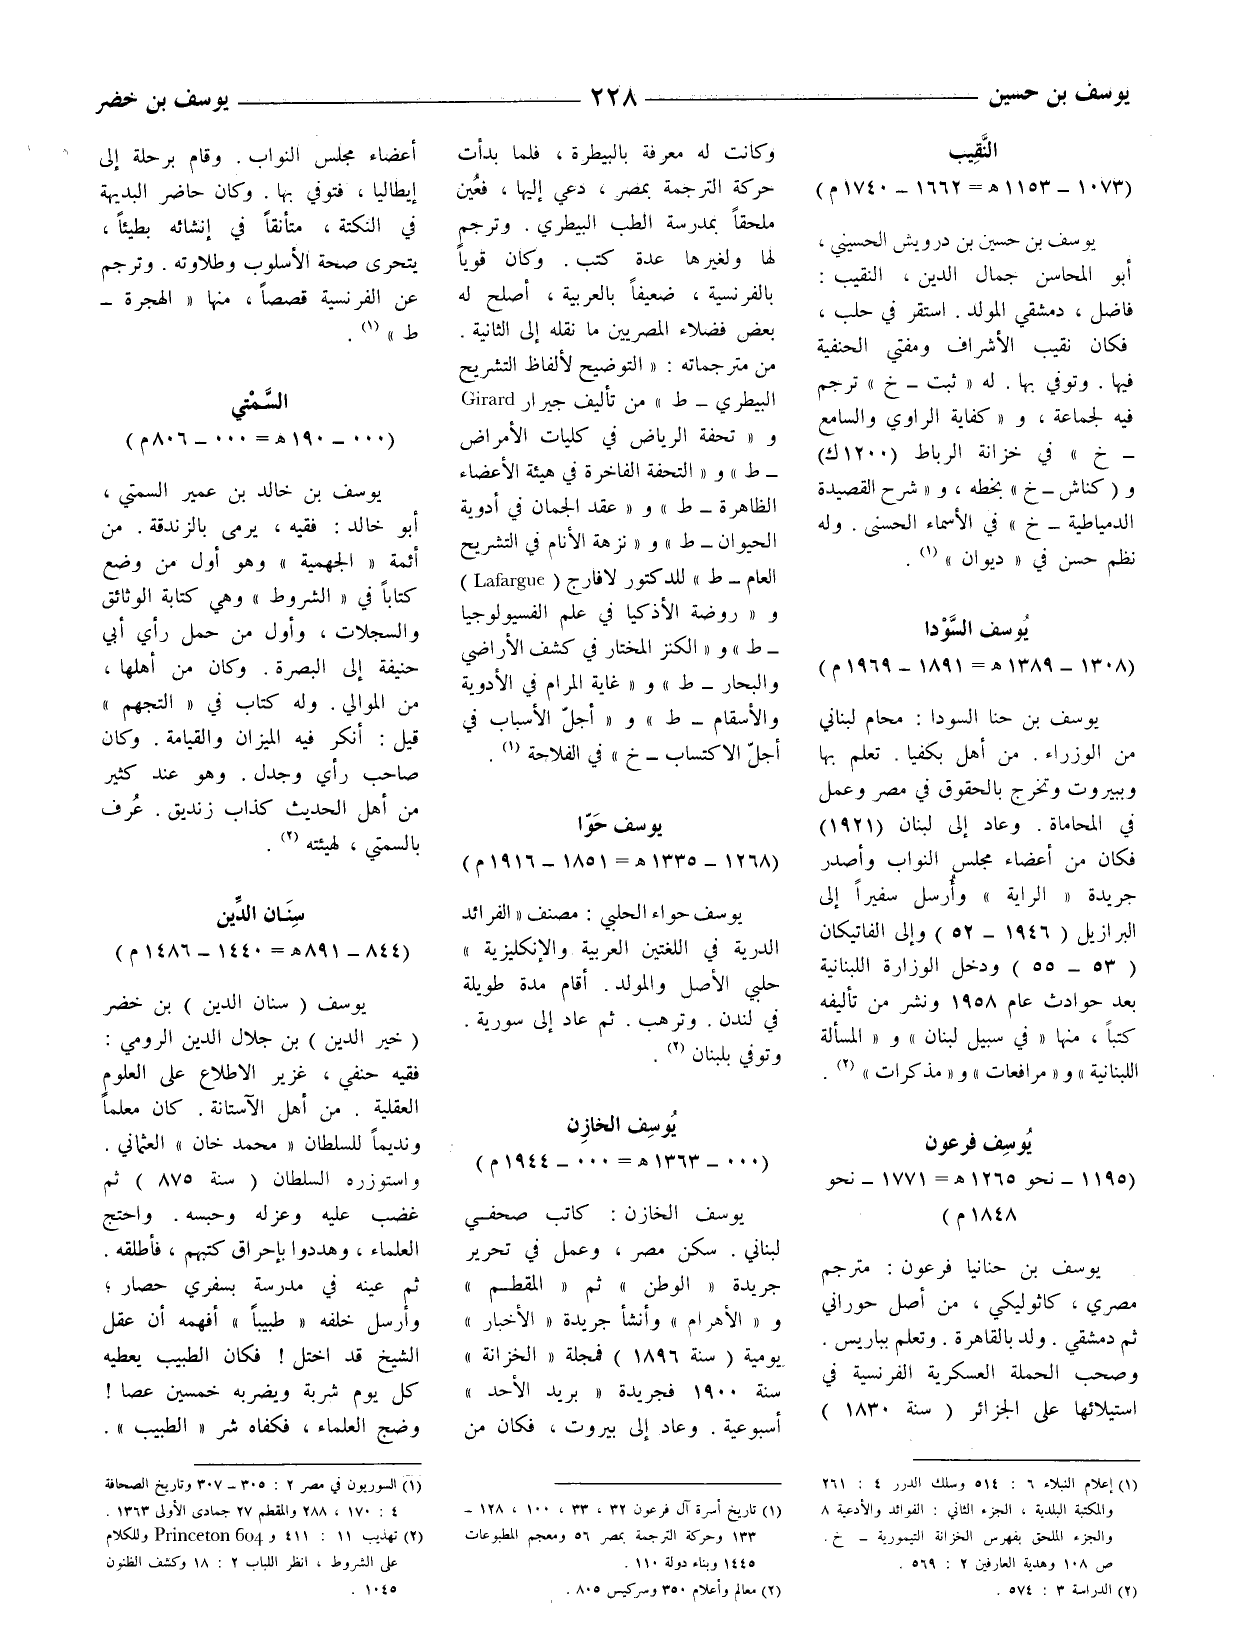 يوسف بن حسين
٢٢٨
يوسف بن خضر
النَّقِيب
(١٠٧٣ ــ ١١٥٣ هـ = ١٦٦٢ ــ ١٧٤٠ م)
يوسف بن حسين بن درويش الحسيني ،
أبو المحاسن جمال الدين ، النقيب :
فاضل ، دمشقي المولد . استقر في حلب ،
فكان نقيب الأشراف ومفتي الحنفية
فيها . وتوفي بها . له « ثبت ــ خ » ترجم
فيه لجماعة ، و « كفاية الراوي والسامع
ــ خ » في خزانة الرباط (١٢٠٠ك)
و ( كناش ــ خ » بخطه ، و « شرح القصيدة
الدمياطية ــ خ » في الأسماء الحسنى . وله
نظم حسن في « ديوان » (١) .
يُوسف السَّوْدا
(١٣٠٨ ــ ١٣٨٩ هـ = ١٨٩١ ــ ١٩٦٩ م)
يوسف بن حنا السودا : محام لبناني
من الوزراء . من أهل بكفيا . تعلم بها
وببيروت وتخرج بالحقوق في مصر وعمل
في المحاماة . وعاد إلى لبنان (١٩٢١)
فكان من أعضاء مجلس النواب وأصدر
جريدة « الراية » وأُرسل سفيراً إلى
البرازيل ( ١٩٤٦ ــ ٥٢ ) وإلى الفاتيكان
( ٥٣ ــ ٥٥ ) ودخل الوزارة اللبنانية
بعد حوادث عام ١٩٥٨ ونشر من تأليفه
كتباً ، منها « في سبيل لبنان » و « المسألة
اللبنانية » و « مرافعات » و « مذكرات » (٢) .
يُوسِف فرعون
(١١٩٥ ــ نحو ١٢٦٥ هـ = ١٧٧١ ــ نحو
١٨٤٨ م)
يوسف بن حنانيا فرعون : مترجم
مصري ، كاثوليكي ، من أصل حوراني
ثم دمشقي . ولد بالقاهرة . وتعلم بباريس .
وصحب الحملة العسكرية الفرنسية في
استيلائها على الجزائر ( سنة ١٨٣٠ )
(١) إعلام النبلاء ٦ : ٥١٤ وسلك الدرر ٤ : ٢٦١
والمكتبة البلدية ، الجزء الثاني : الفوائد والأدعية ٨
والجزء الملحق بفهرس الخزانة التيمورية ــ خ .
ص ١٠٨ وهدية العارفين ٢ : ٥٦٩ .
(٢) الدراسة ٣ : ٥٧٤ .
وكانت له معرفة بالبيطرة ، فلما بدأت
حركة الترجمة بمصر ، دعي إليها ، فعُين
ملحقاً بمدرسة الطب البيطري . وترجم
لها ولغيرها عدة كتب . وكان قوياً
بالفرنسية ، ضعيفاً بالعربية ، أصلح له
بعض فضلاء المصريين ما نقله إلى الثانية .
من مترجماته : « التوضيح لألفاظ التشريح
البيطري ــ ط » من تأليف جيرار Girard
و « تحفة الرياض في كليات الأمراض
ــ ط » و « التحفة الفاخرة في هيئة الأعضاء
الظاهرة ــ ط » و « عقد الجمان في أدوية
الحيوان ــ ط » و « نزهة الأنام في التشريح
العام ــ ط » للدكتور لافارج ( Lafargue )
و « روضة الأذكيا في علم الفسيولوجيا
ــ ط » و « الكنز المختار في كشف الأراضي
والبحار ــ ط » و « غاية المرام في الأدوية
والأسقام ــ ط » و « أجلّ الأسباب في
أجلّ الاكتساب ــ خ » في الفلاحة (١) .
يوسف حَوّا
(١٢٦٨ ــ ١٣٣٥ هـ = ١٨٥١ ــ ١٩١٦ م)
يوسف حواء الحلبي : مصنف « الفرائد
الدرية في اللغتين العربية والإنكليزية »
حلبي الأصل والمولد . أقام مدة طويلة
في لندن . وترهب . ثم عاد إلى سورية .
وتوفي بلبنان (٢) .
يُوسِف الخازِن
(٠٠٠ ــ ١٣٦٣ هـ = ٠٠٠ ــ ١٩٤٤ م)
يوسف الخازن : كاتب صحفي
لبناني . سكن مصر ، وعمل في تحرير
جريدة « الوطن » ثم « المقطم »
و « الأهرام » وأنشأ جريدة « الأخبار »
يومية ( سنة ١٨٩٦ ) فمجلة « الخزانة »
سنة ١٩٠٠ فجريدة « بريد الأحد »
أسبوعية . وعاد إلى بيروت ، فكان من
(١) تاريخ أسرة آل فرعون ٣٢ ، ٣٣ ، ١٠٠ ، ١٢٨ ــ
١٣٣ وحركة الترجمة بمصر ٥٦ ومعجم المطبوعات
١٤٤٥ وبناء دولة ١١٠ .
(٢) معالم وأعلام ٣٥٠ وسركيس ٨٠٥ .
أعضاء مجلس النواب . وقام برحلة إلى
إيطاليا ، فتوفي بها . وكان حاضر البديهة
في النكتة ، متأنقاً في إنشائه بطيئاً ،
يتحرى صحة الأسلوب وطلاوته . وترجم
عن الفرنسية قصصاً ، منها « الهجرة ــ
ط » (١) .
السَّمْتي
(٠٠٠ ــ ١٩٠ هـ = ٠٠٠ ــ ٨٠٦ م)
يوسف بن خالد بن عمير السمتي ،
أبو خالد : فقيه ، يرمى بالزندقة . من
أئمة « الجهمية » وهو أول من وضع
كتاباً في « الشروط » وهي كتابة الوثائق
والسجلات ، وأول من حمل رأي أبي
حنيفة إلى البصرة . وكان من أهلها ،
من الموالي . وله كتاب في « التجهم »
قيل : أنكر فيه الميزان والقيامة . وكان
صاحب رأي وجدل . وهو عند كثير
من أهل الحديث كذاب زنديق . عُرف
بالسمتي ، لهيئته (٢) .
سِنَان الدِّين
(٨٤٤ ــ ٨٩١هـ = ١٤٤٠ ــ ١٤٨٦ م)
يوسف ( سنان الدين ) بن خضر
( خير الدين ) بن جلال الدين الرومي :
فقيه حنفي ، غزير الاطلاع على العلوم
العقلية . من أهل الآستانة . كان معلماً
ونديماً للسلطان « محمد خان » العثماني .
واستوزره السلطان ( سنة ٨٧٥ ) ثم
غضب عليه وعزله وحبسه . واحتج
العلماء ، وهددوا بإحراق كتبهم ، فأطلقه .
ثم عينه في مدرسة بسفري حصار ؛
وأرسل خلفه « طبيباً » أفهمه أن عقل
الشيخ قد اختل ! فكان الطبيب يعطيه
كل يوم شربة ويضربه خمسين عصا !
وضج العلماء ، فكفاه شر « الطبيب » .
(١) السوريون في مصر ٢ : ٣٠٥ ــ ٣٠٧ وتاريخ الصحافة
٤ : ١٧٠ ، ٢٨٨ والمقطم ٢٧ جمادى الأولى ١٣٦٣ .
(٢) تهذيب ١١ : ٤١١ و Princeton 604 وللكلام
على الشروط ، انظر اللباب ٢ : ١٨ وكشف الظنون
١٠٤٥ .